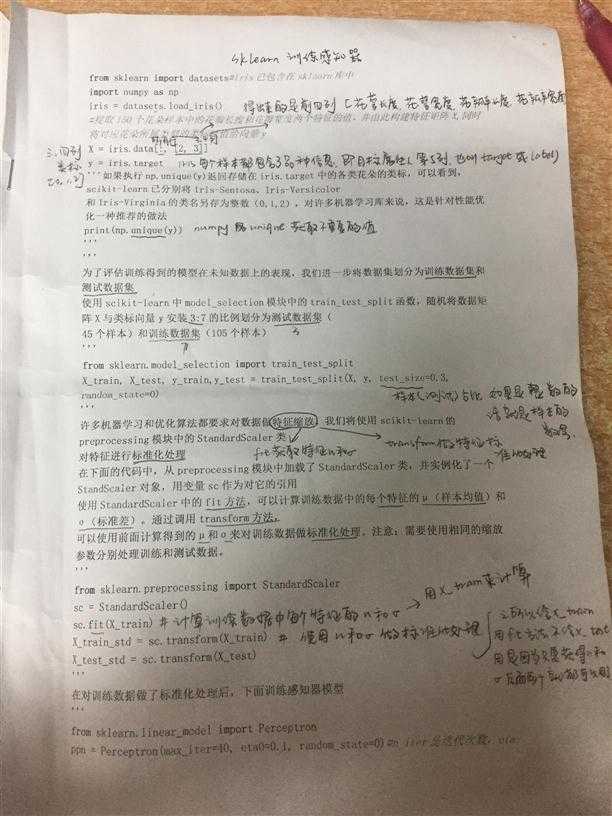 sklearn 训练感知器
from sklearn import datasets#iris已包含在sklearn库中
import numpy as np
iris = datasets.load_iris() 得出来的是前四列 [花萼长度,花萼宽度,花瓣长度,花瓣宽度
#提取150个花朵样本中的花瓣长度和花瓣宽度两个特征的值,并由此构建特征矩阵X,同时
将对应花朵所属类型的类标赋值给向量y
X = iris.data[:, [2, 3]]
三、四列
y = iris.target iris每个样本都包含了品种信息,即目标属性(第5列,也叫target或label)
类标
[0,1,2]
'''如果执行np.unique(y)返回存储在iris.target中的各类花朵的类标,可以看到,
scikit-learn已分别将Iris-Sentosa、Iris-Versicolor
和Iris-Virginia的类名另存为整数(0,1,2),对许多机器学习库来说,这是针对性能优
化一种推荐的做法
print(np.unique(y)) numpy的unique获取不重复的值
'''
'''
为了评估训练得到的模型在未知数据上的表现,我们进一步将数据集划分为训练数据集和
测试数据集
使用scikit-learn中model_selection模块中的train_test_split函数,随机将数据矩
阵X与类标向量y安装3:7的比例划分为测试数据集(
45个样本)和训练数据集(105个样本)
3
7
'''
from sklearn.model_selection import train_test_split
X_train, X_test, y_train,y_test = train_test_split(X, y, test_size=0.3,
random_state=0)
样本(测试)占比 如果是整数的
话就是样本的
数量
'''
许多机器学习和优化算法都要求对数据做特征缩放,我们将使用scikit-learn的
preprocessing模块中的StandardScaler类
对特征进行标准化处理 fit获取特征u和σ
transform做特征标
准化处理
在下面的代码中,从preprocessing模块中加载了StandardScaler类,并实例化了一个
StandScaler对象,用变量sc作为对它的引用
使用StandardScaler中的fit方法,可以计算训练数据中的每个特征的μ(样本均值)和
σ(标准差)。通过调用transform方法,
可以使用前面计算得到的μ和σ来对训练数据做标准化处理。注意:需要使用相同的缩放
参数分别处理训练和测试数据。
'''
from sklearn.preprocessing import StandardScaler
用X_train来计算
sc = StandardScaler()
sc.fit(X_train) #计算训练数据中每个特征的u和σ
X_train_std = sc.transform(X_train) # 使用u和σ做标准化处理
X_test_std = sc.transform(X_test)
之所以给X_train
用fit方法不给X_test
用是因为只要获得u和
'''
在对训练数据做了标准化处理后,下面训练感知器模型
'''
from sklearn.linear_model import Perceptron
ppn = Perceptron(max_iter=40, eta0=0.1, random_state=0)#n_iter是迭代次数,eta